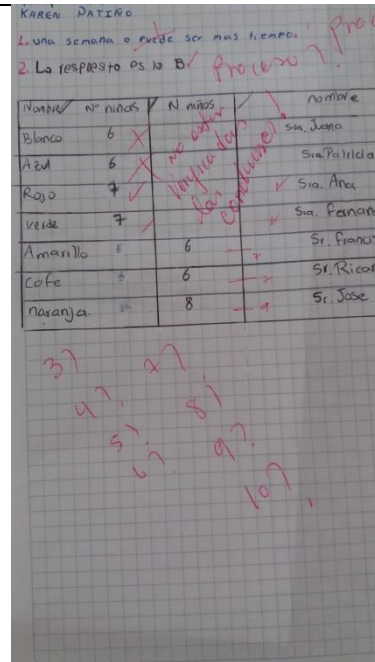 KAREN PATIÑO
1. una semana o puede ser mas tiempo.
2. La respuesta es la B Proceso?
Nombre Nº niñas N niños nombre
Blanco 6 Sra. Juana
Azul 6 Sra Patricia
Rojo 7 Sra. Ana
verde 7 Sra. Fernan
Amarillo 6 Sr. Franci
Cafe 6 Sr. Ricar
naranja 8 Sr. Jose
no están
verificadas
las
conclusiones
3? 7?
4? 8?
5? 9?
6?
10?